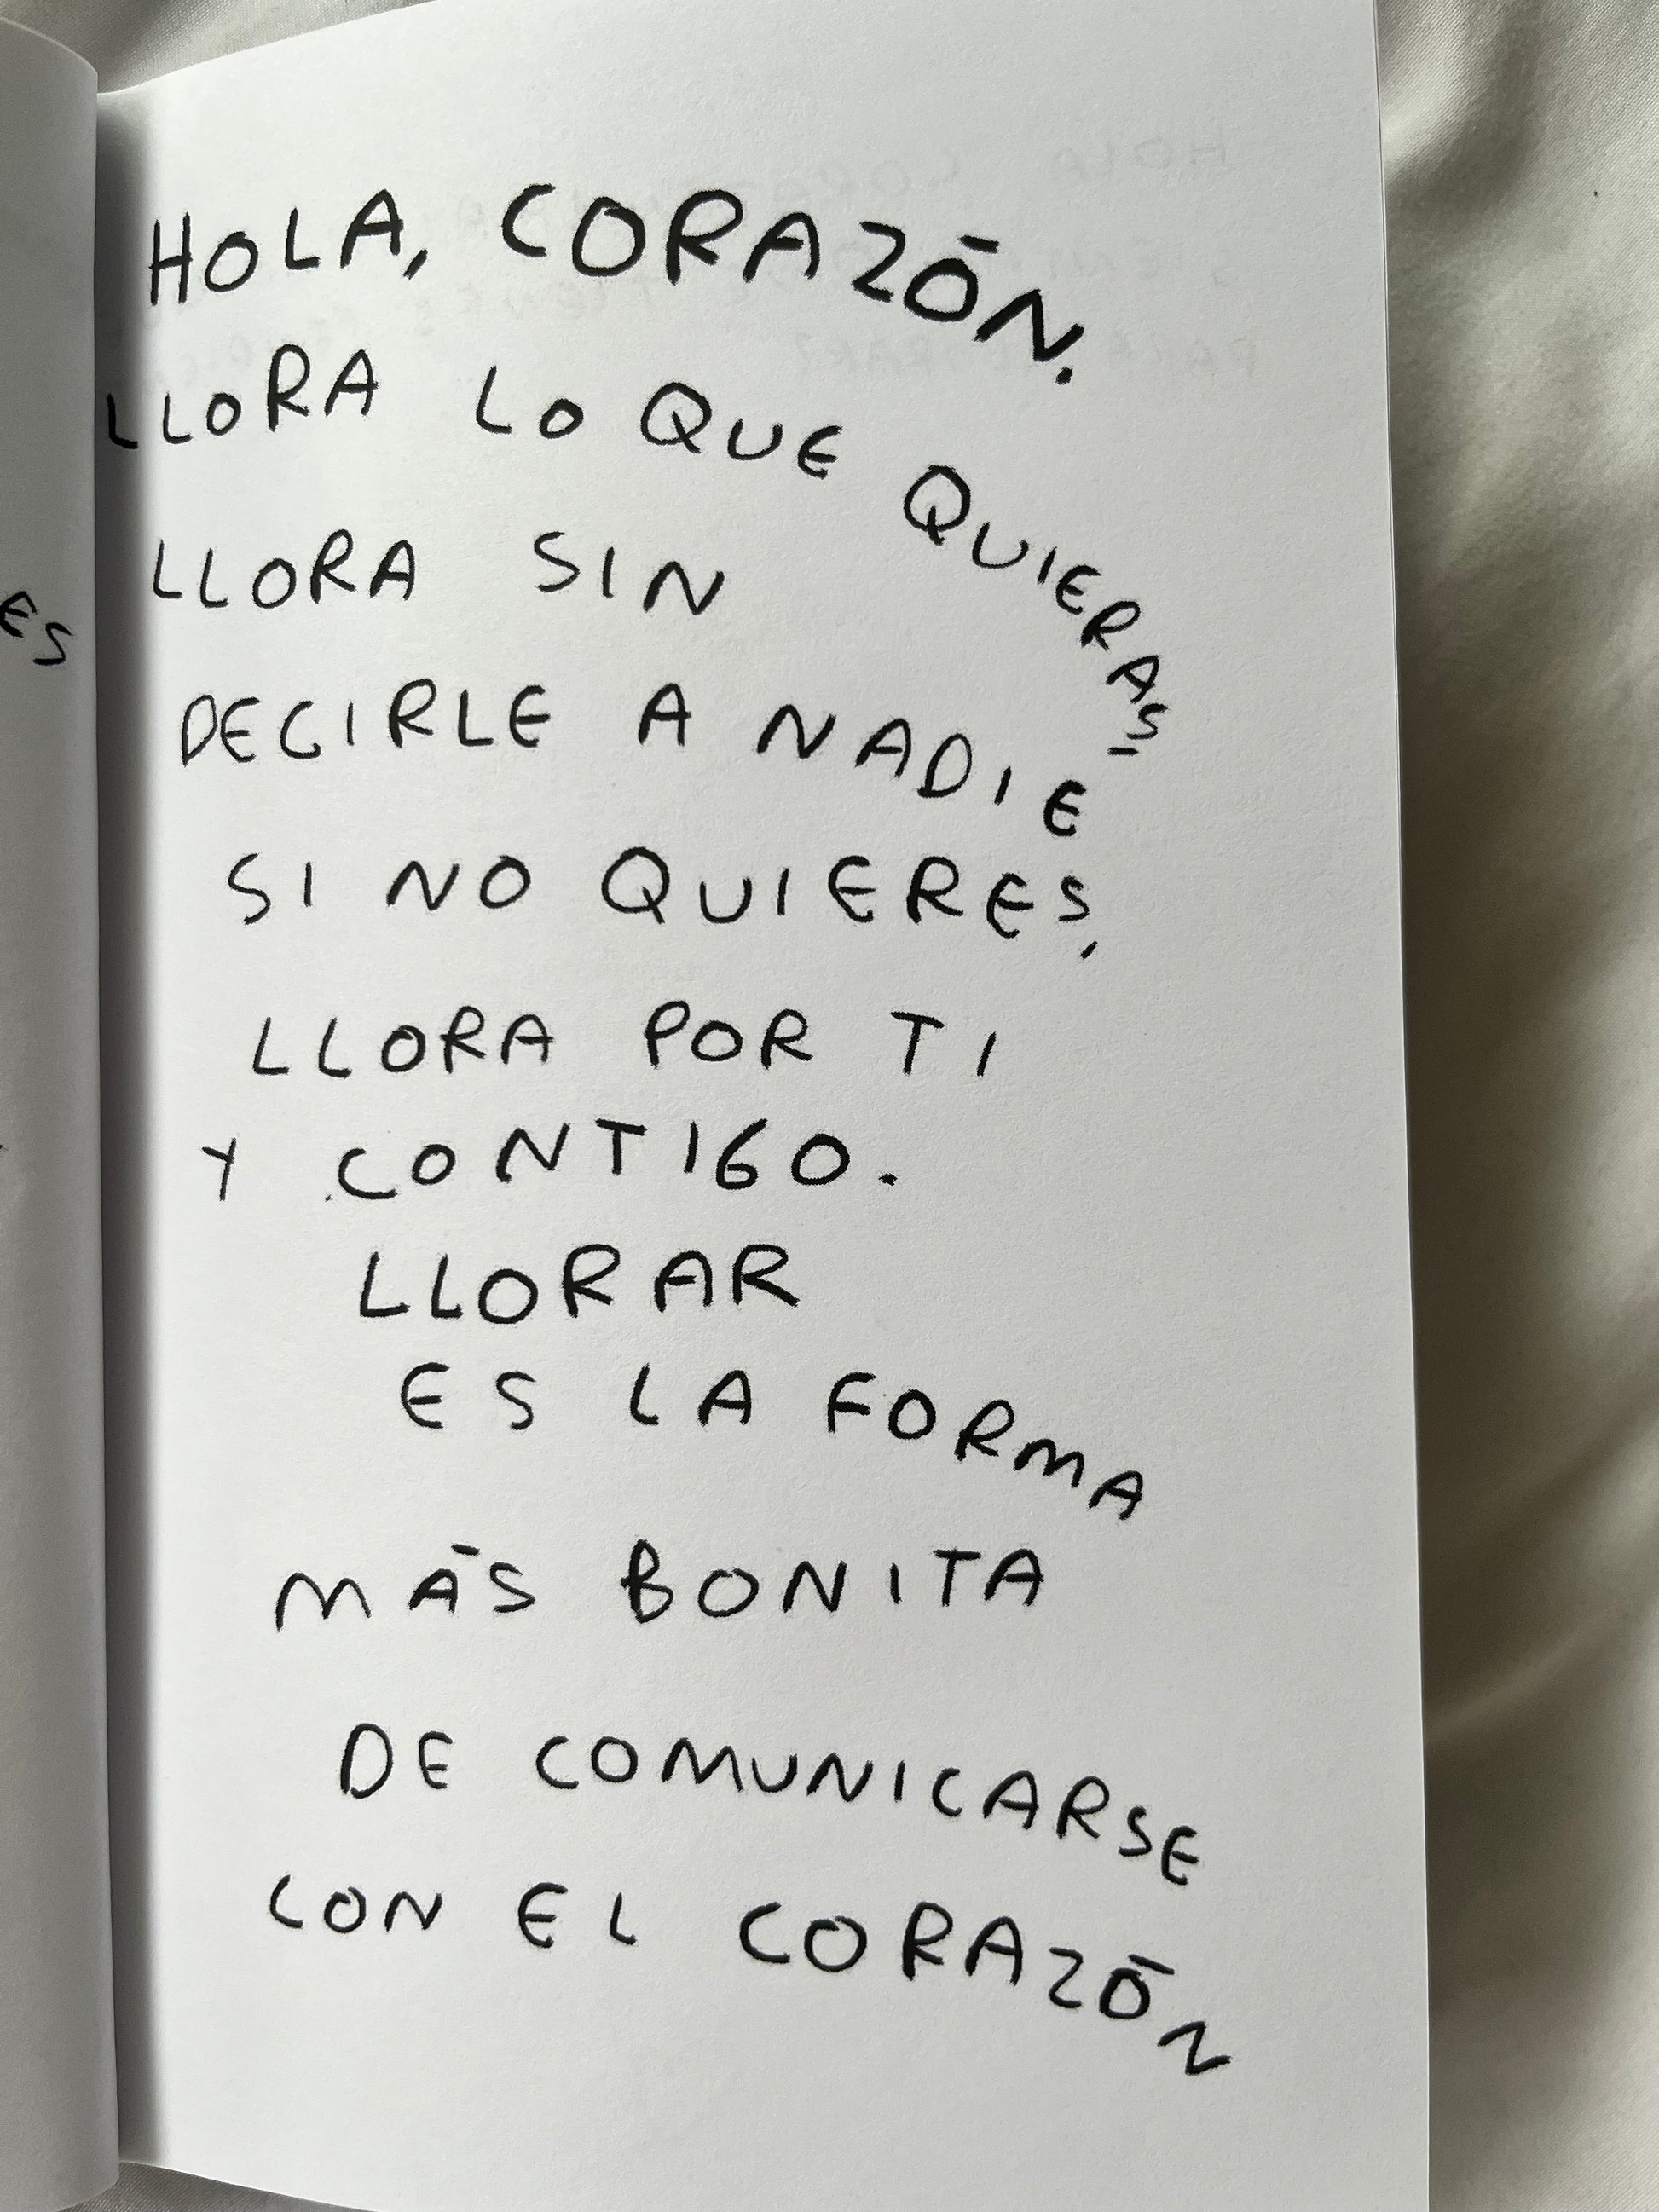 HOLA, CORAZÓN.
LLORA LO QUE QUIERAS,
LLORA SIN
DECIRLE A NADIE
SI NO QUIERES,
LLORA POR TI
Y CONTIGO.
LLORAR
ES LA FORMA
MÁS BONITA
DE COMUNICARSE
CON EL CORAZÓN
ES